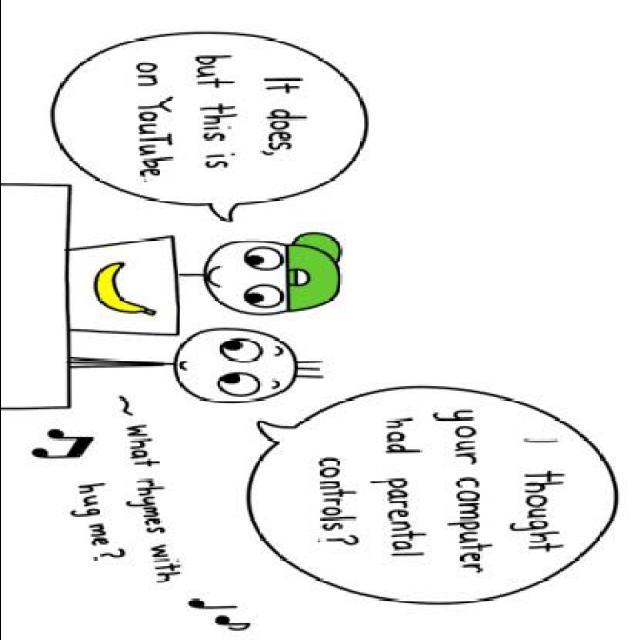 I thought
your computer
had parental
controls?
It does,
but this is
on YouTube.
~ what rhymes with
hug me?